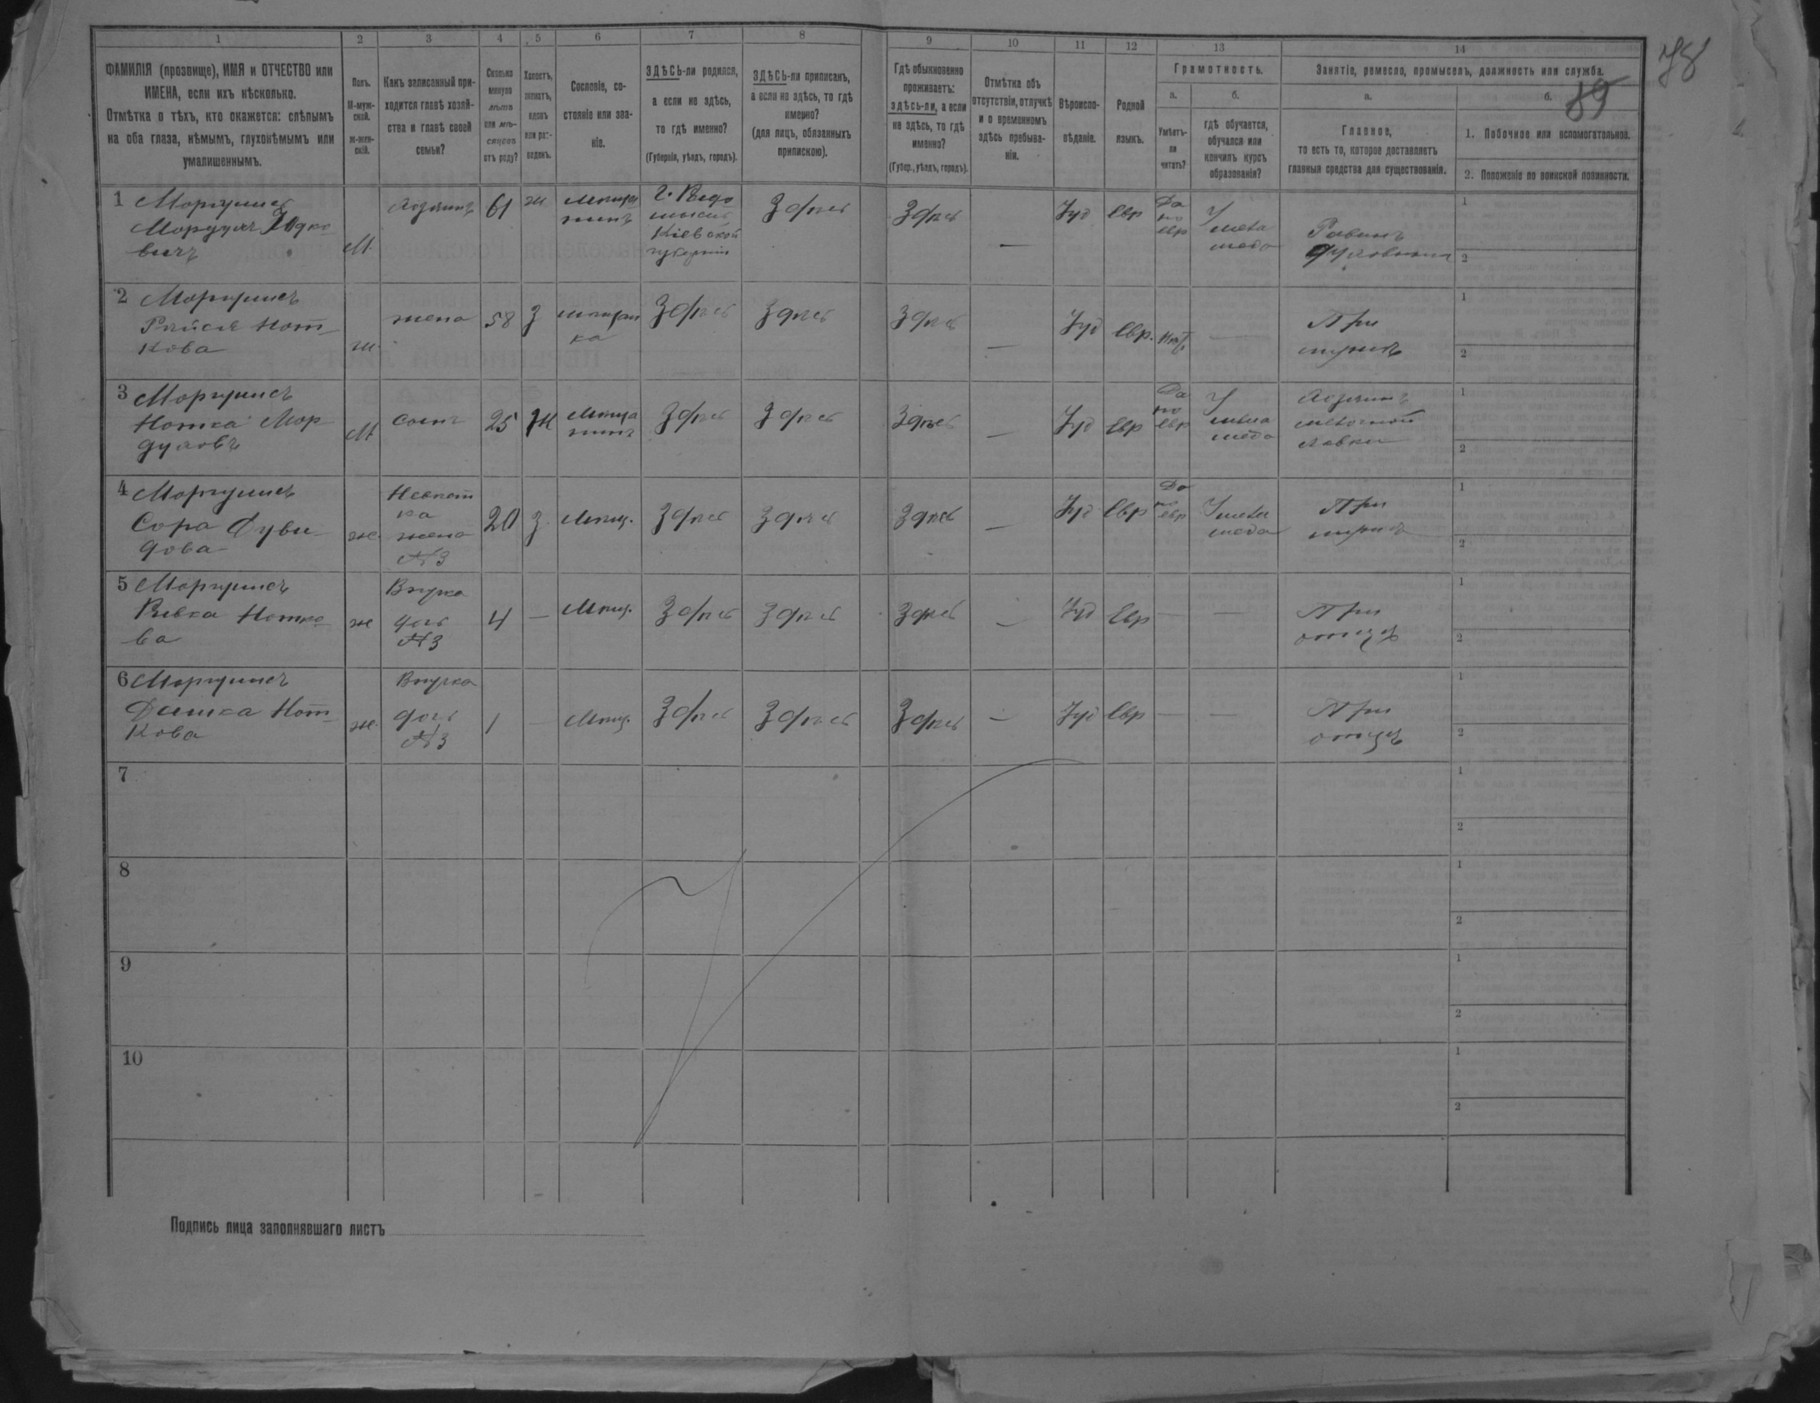 78
89
1 2 3 4 5 6 7 8 9 10 11 12 13 14
ФАМИЛІЯ (прозвище), ИМЯ и ОТЧЕСТВО или
ИМЕНА, если ихъ нѣсколько.
Отмѣтка о тѣхъ, кто окажется: слѣпымъ
на оба глаза, нѣмымъ, глухонѣмымъ или
умалишеннымъ.
Полъ.
М-муж-
ской.
ж-жен-
скій.
Какъ записанный при-
ходится главѣ хозяй-
ства и главѣ своей
семьи?
Сколько
минуло
лѣтъ
или мѣ-
сяцевъ
отъ роду?
Холостъ,
женатъ,
вдовъ
или раз-
веденъ.
Сословіе, со-
стояніе или зва-
ніе.
ЗДѢСЬ-ли родился,
а если не здѣсь,
то гдѣ именно?
(Губернія, уѣздъ, городъ).
ЗДѢСЬ-ли приписанъ,
а если не здѣсь, то гдѣ
именно?
(для лицъ, обязанныхъ
припискою).
Гдѣ обыкновенно
проживаетъ:
здѣсь-ли, а если
не здѣсь, то гдѣ
именно?
(Губер., уѣздъ, городъ).
Отмѣтка объ
отсутствіи, отлучкѣ
и о временномъ
здѣсь пребыва-
ніи.
Вѣроиспо-
вѣданіе.
Родной
языкъ.
Грамотность.
а.
Умѣетъ-
ли
читать?
б.
гдѣ обучается,
обучался или
кончилъ курсъ
образованія?
Занятіе, ремесло, промыселъ, должность или служба.
а.
Главное,
то есть то, которое доставляетъ
главныя средства для существованія.
б.
1. Побочное или вспомогательное.
2. Положеніе по воинской повинности.
1 Моргулисъ
Мордухъ Юдко
вичъ
М
хозяинъ
61
ж
Мѣща
нинъ
г. Радо
мысль
Кіевской
губерніи
Здѣсь
Здѣсь
—
Іуд
Евр
Да
по
евр
У
мела
меда
Равинъ
духовный
1
2
2 Моргулисъ
Райся Нот
кова
ж
жена
58
З
мѣщан
ка
Здѣсь
Здѣсь
Здѣсь
—
Іуд
Евр.
Нѣтъ
—
При
мужѣ
1
2
3 Моргулисъ
Нотка Мор
духовъ
М
сынъ
25
Ж
Мѣща
нинъ
Здѣсь
Здѣсь
Здѣсь
—
Іуд
Евр
Да
по
евр
У
мела
меда
Хозяинъ
мелочной
лавки
1
2
4 Моргулисъ
Сора Дуви
дова
ж
Невѣст
ка
жена
№3
20
З
Мѣщ.
Здѣсь
Здѣсь
Здѣсь
—
Іуд
Евр
Да
по
евр
У мела
меда
При
мужѣ
1
2
5 Моргулисъ
Ривка Нотко
ва
ж
Внучка
дочь
№3
4
—
Мѣщ.
Здѣсь
Здѣсь
Здѣсь
—
Іуд
Евр
—
—
При
отцѣ
1
2
6 Моргулисъ
Нот
кова
ж
Внучка
дочь
№3
1
—
Мѣщ.
Здѣсь
Здѣсь
Здѣсь
—
Іуд
Евр
—
—
При
отцѣ
1
2
7
1
2
8
1
2
9
1
2
10
1
2
Подпись лица заполнявшаго листъ